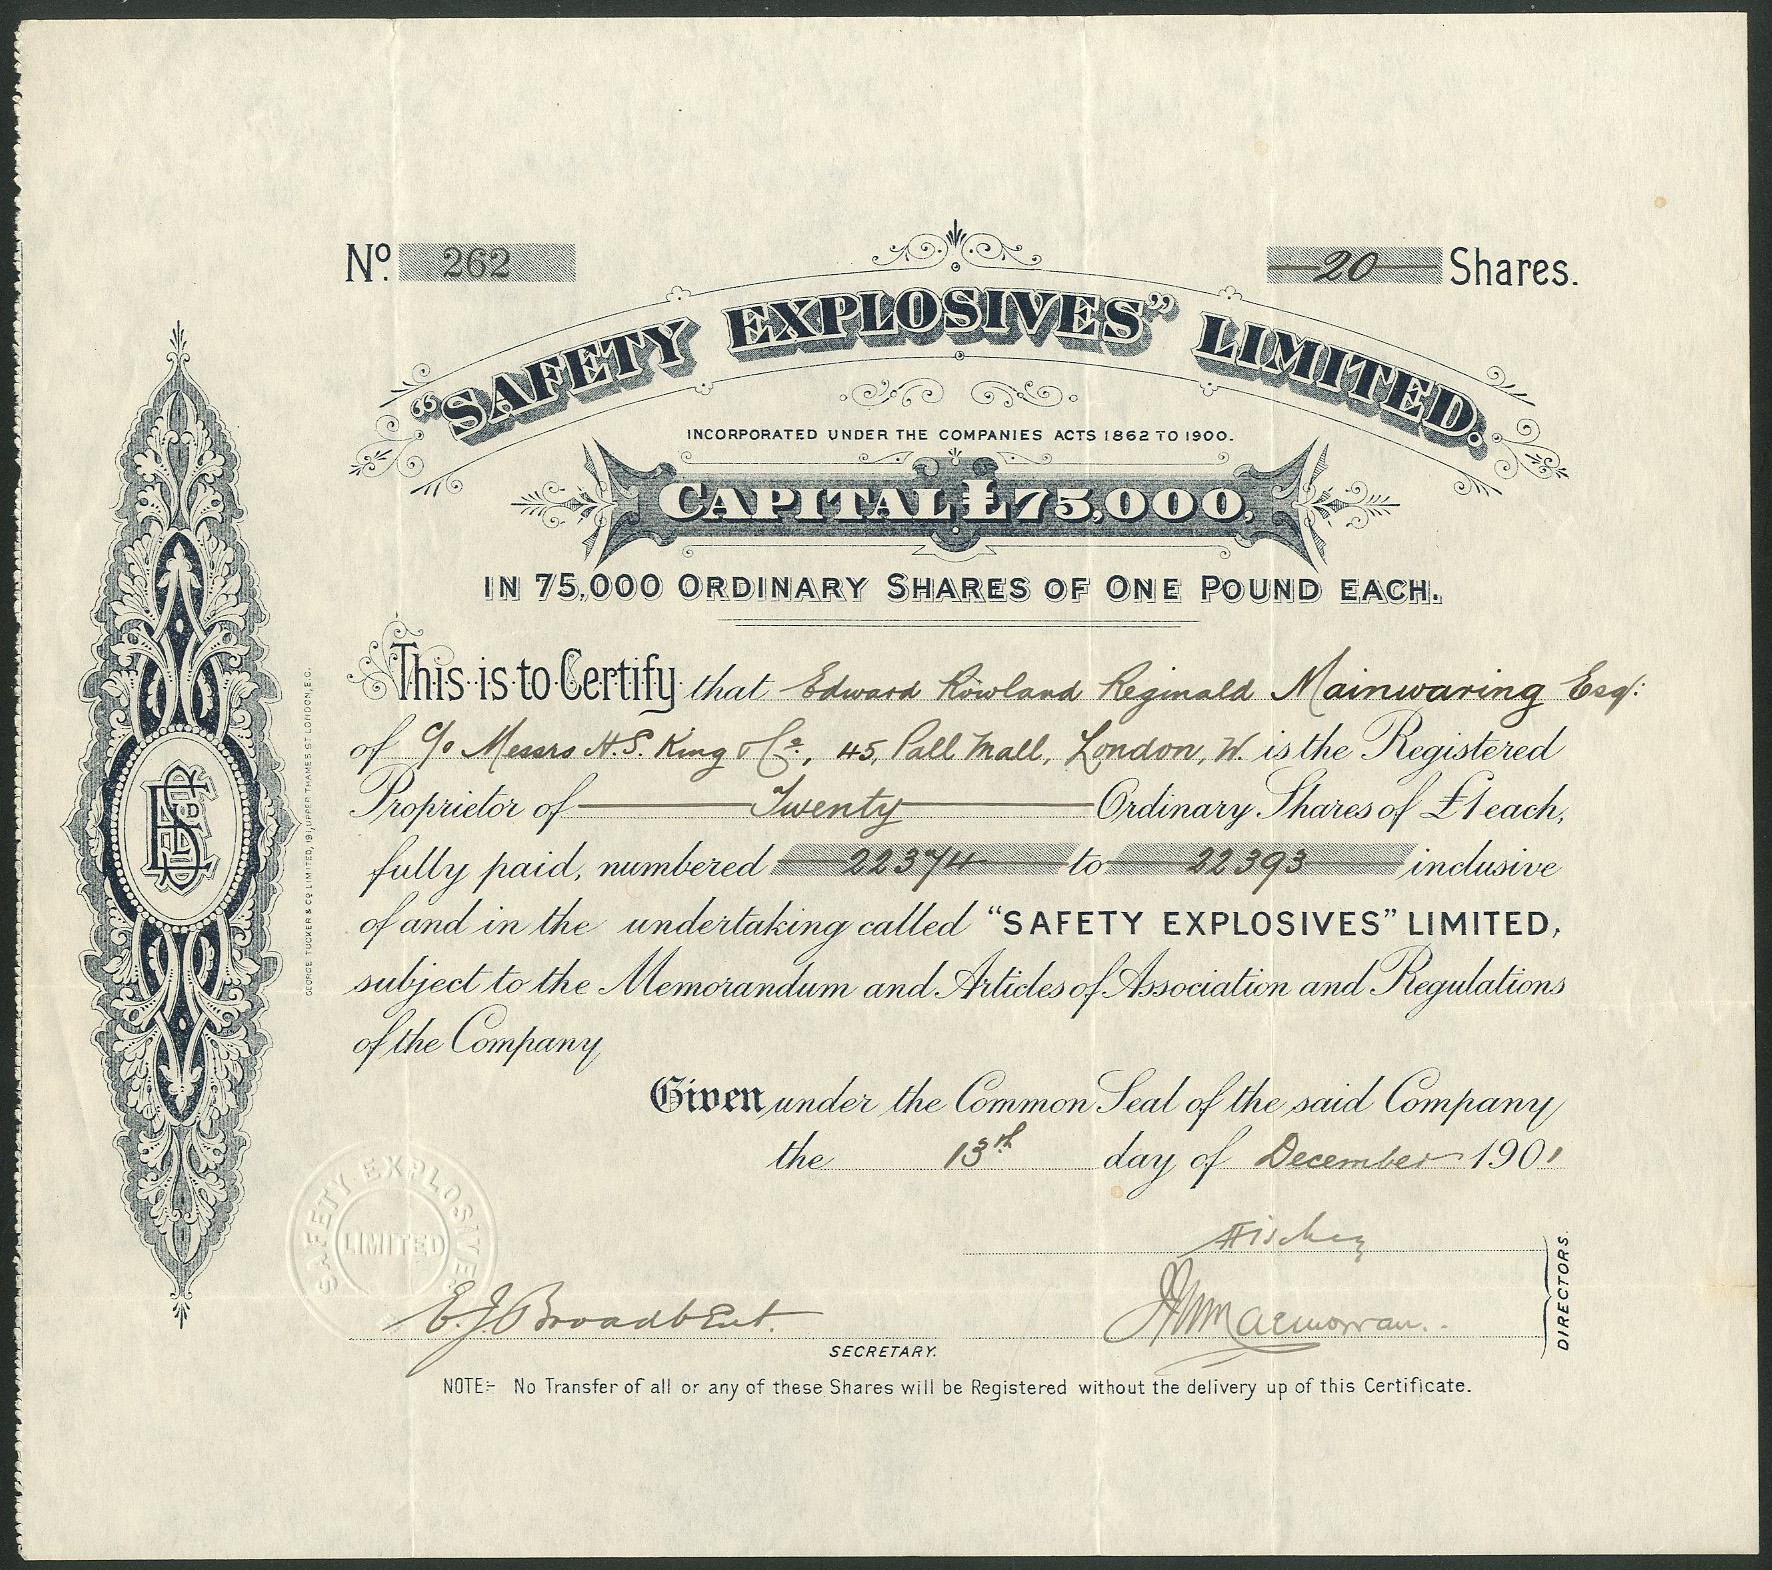 No. 262
20 Shares.
"SAFETY EXPLOSIVES" LIMITED.
INCORPORATED UNDER THE COMPANIES ACTS 1862 TO 1900.
CAPITAL £75,000,
IN 75,000 ORDINARY SHARES OF ONE POUND EACH.
This is to Certify that Edward Rowland Reginald Mainwaring Esq:
of c/o Messrs H. S. King & Co:, 45, Pall Mall, London, W. is the Registered
Proprietor of Twenty Ordinary Shares of £1 each,
fully paid, numbered 22374 to 22393 inclusive
of and in the undertaking called "SAFETY EXPLOSIVES" LIMITED,
subject to the Memorandum and Articles of Association and Regulations
of the Company
Given under the Common Seal of the said Company
the 13th day of December 1901
SAFETY EXPLOSIVES
LIMITED
E. J. Broadbent.
SECRETARY.
DIRECTORS.
NOTE:- No Transfer of all or any of these Shares will be Registered without the delivery up of this Certificate.
GEORGE TUCKER & CO LIMITED, 191, UPPER THAMES ST LONDON, E.C.